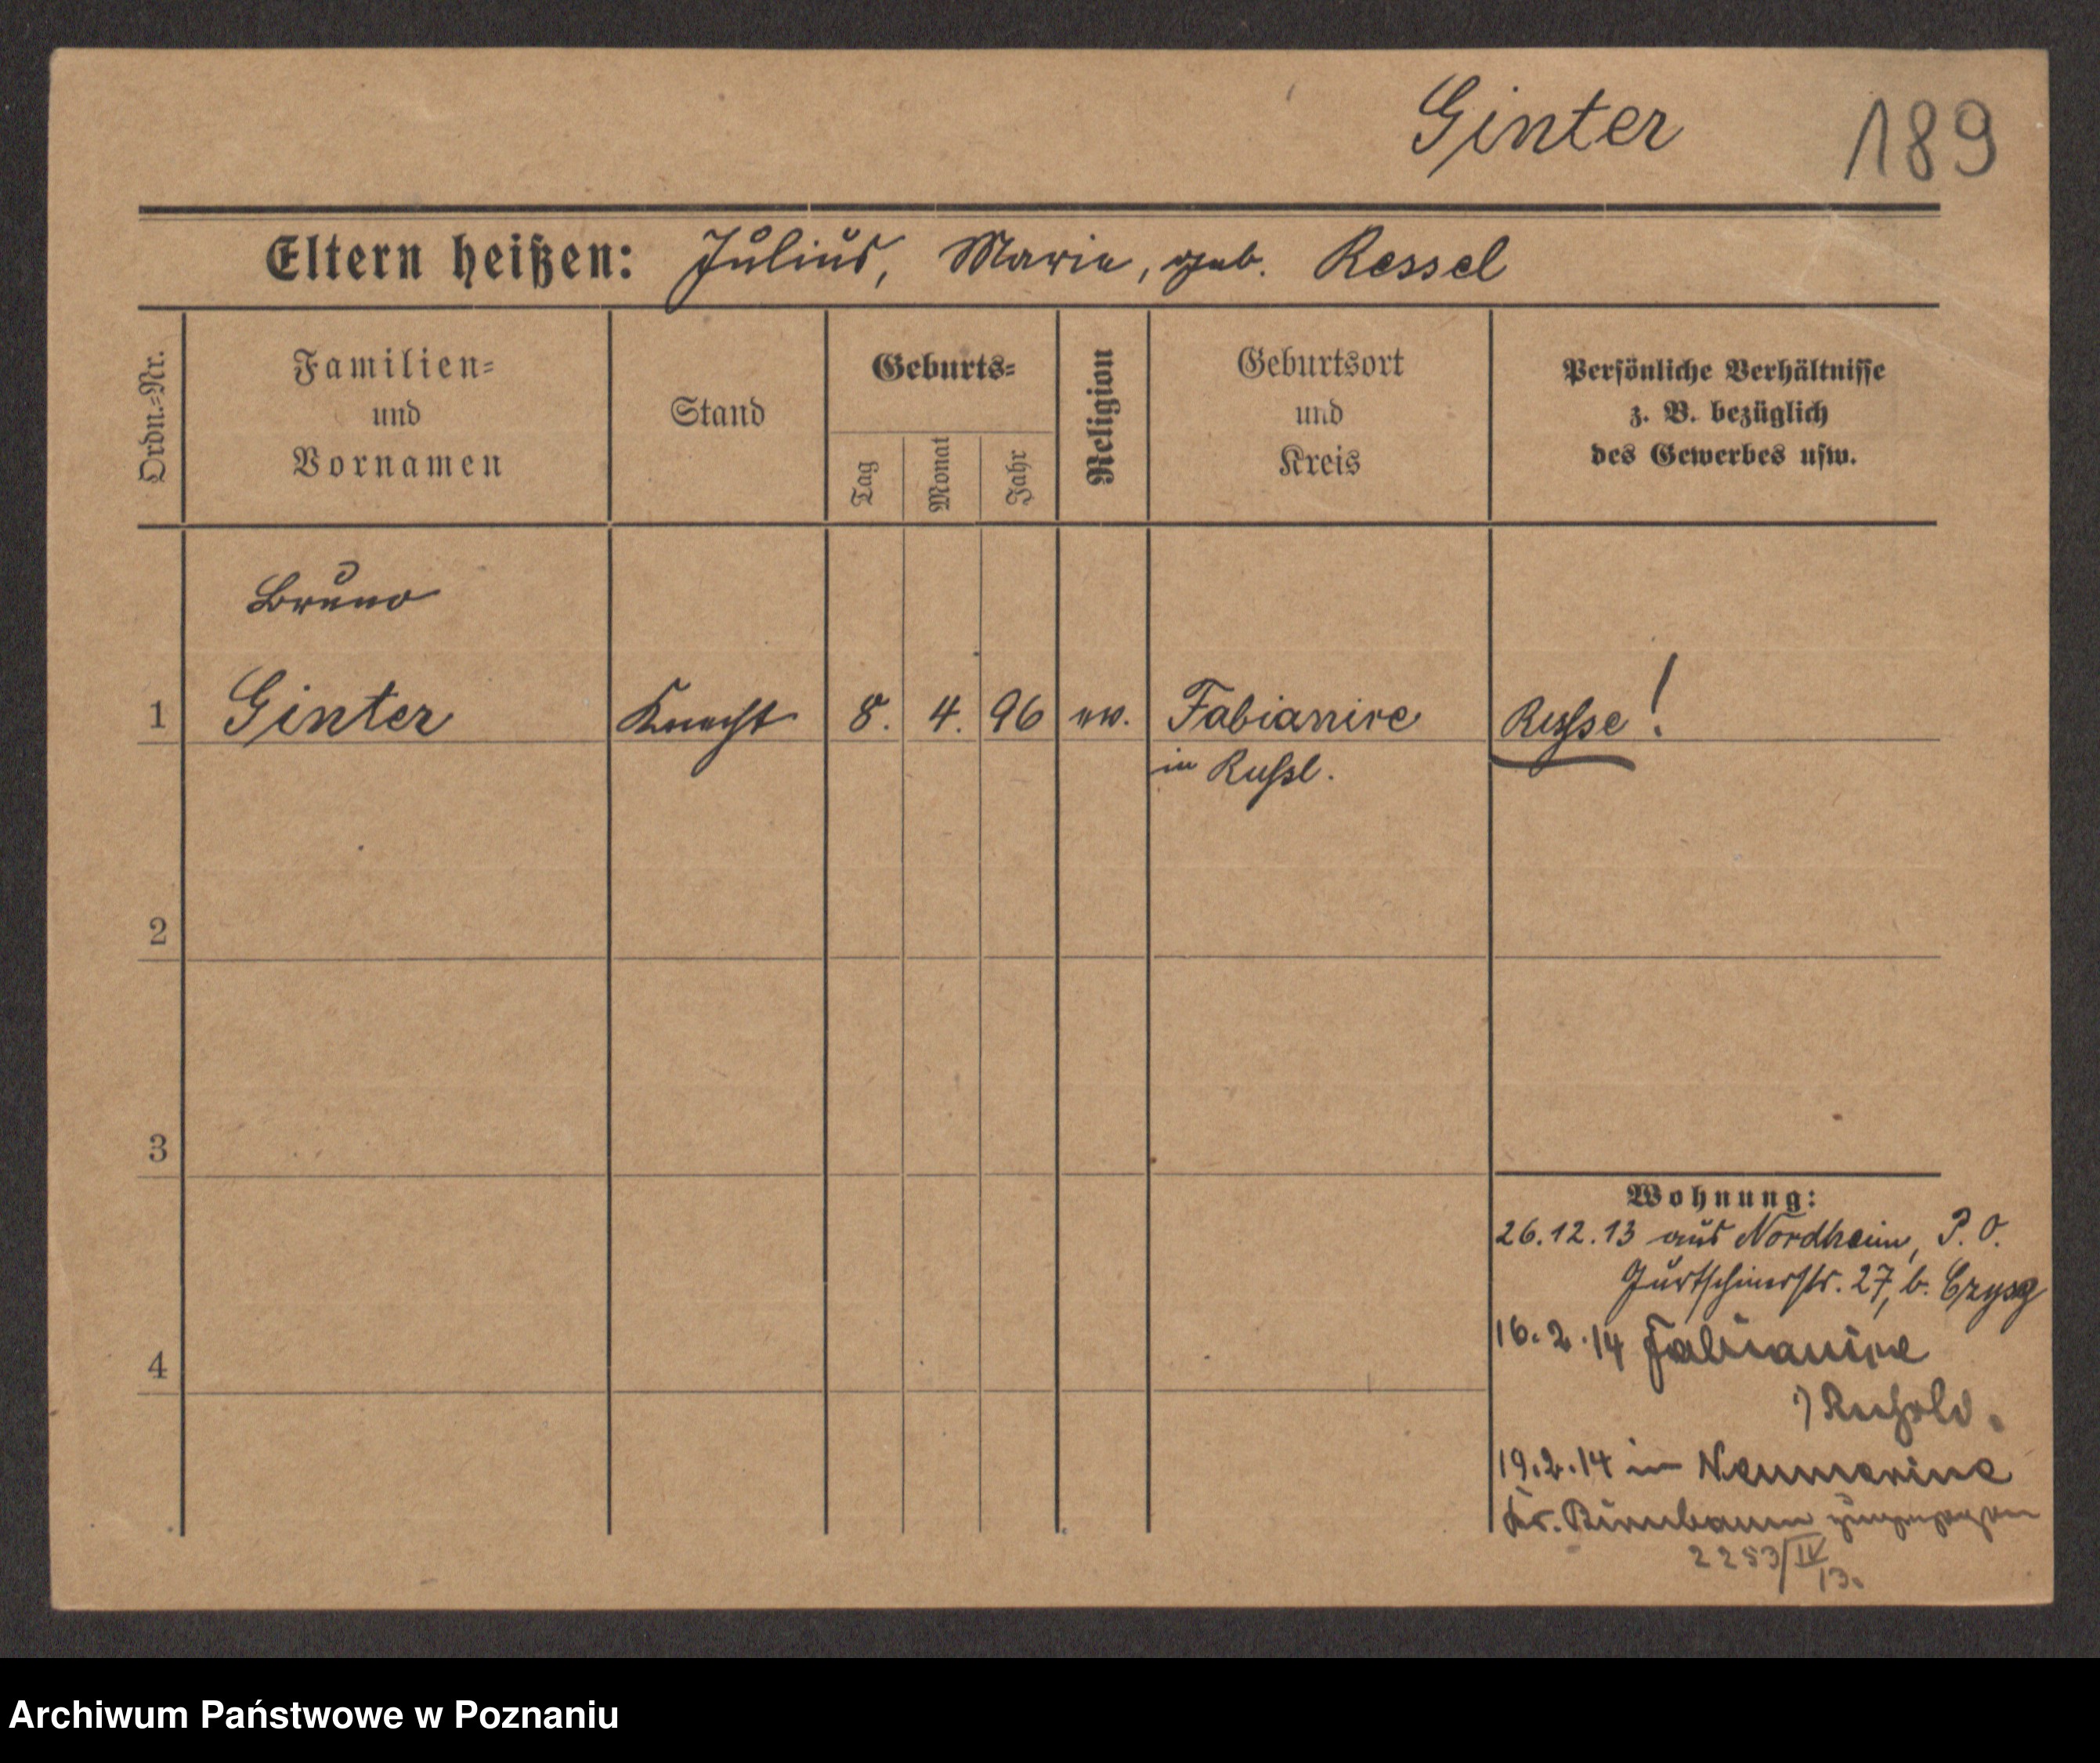 Ginter
189
Eltern heißen: Julius, Marie, geb. Ressel
Ordn.-Nr.
Familien-
und
Vornamen
Stand
Geburts-
Tag
Monat
Jahr
Religion
Geburtsort
und
Kreis
Persönliche Verhältnisse
z. B. bezüglich
des Gewerbes usw.
Bruno
1 Ginter Knecht 8. 4. 96 ev. Fabianire Russe!
in Rußl.
2
3
4
Wohnung:
26.12.13 aus Nordheim, P. O.
Gurtschinerstr. 27, b.
16.2.14 Fabianire
19.2.14 in
Kr. Birnbaum zugezogen
2253/IV
13.
Archiwum Państwowe w Poznaniu